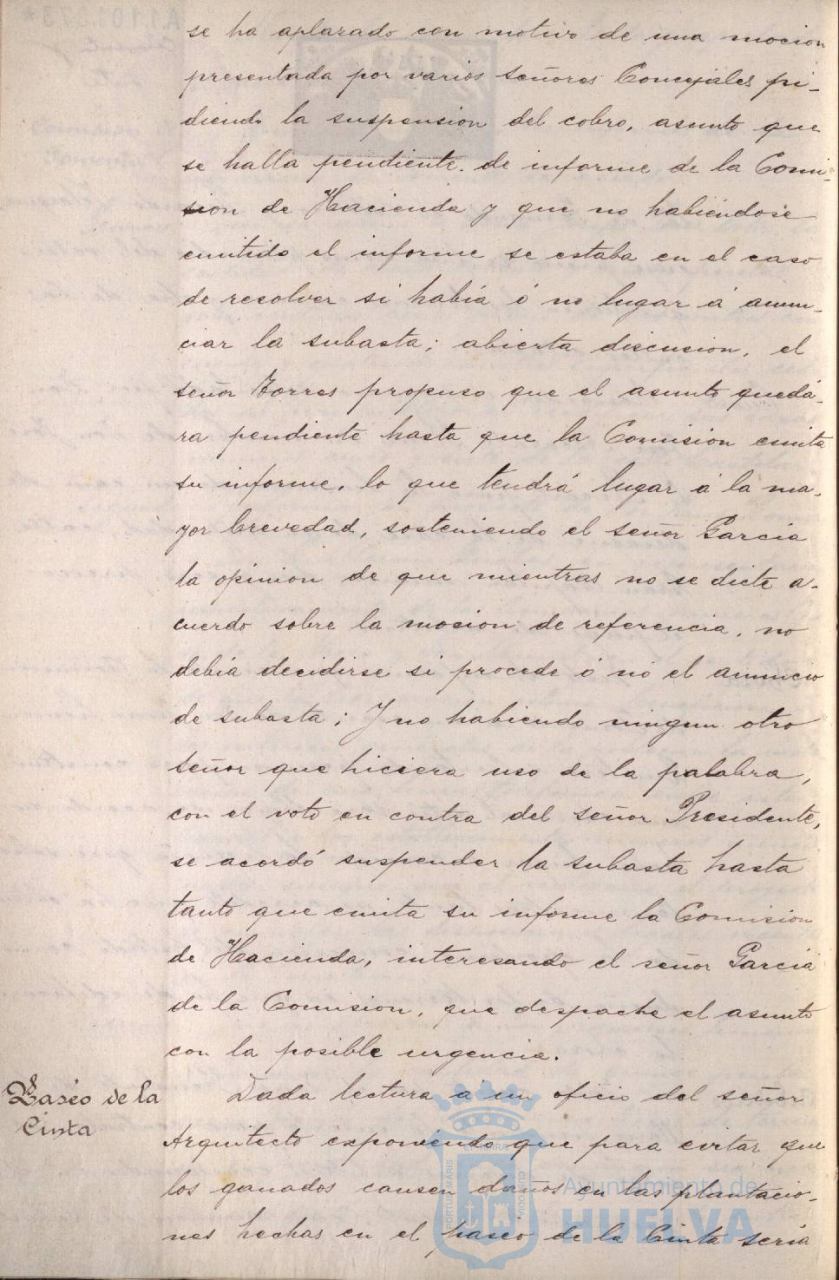 se ha aplazado con motivo de una mocion
presentada por varios señores Concejales pi-
diendo la suspension del cobro, asunto que
se halla pendiente de informe de la Comi-
sion de Hacienda y que no habiéndose
emitido el informe se estaba en el caso
de resolver si había ó no lugar á anun-
ciar la subasta; abierta discusion, el
señor Torres propuso que el asunto quedá-
ra pendiente hasta que la Comision emita
su informe, lo que tendrá lugar á la ma-
yor brevedad, sosteniendo el señor Garcia
la opinion de que mientras no se dicte a-
cuerdo sobre la mosion de referencia, no
debia decidirse si procede ó nó el anuncio
de subasta; Y no habiendo ningun otro
señor que hiciera uso de la palabra,
con el voto en contra del señor Presidente,
se acordó suspender la subasta hasta
tanto que emita su informe la Comision
de Hacienda, interesando el señor Garcia
de la Comision, que despache el asunto
con la posible urgencia.
Paseo de la
Cinta
Dada lectura a un oficio del señor
Arquitecto exponiendo que para evitar que
los ganados causen daños en las plantacio-
nes hechas en el paseo de la Cinta sería
Ayuntamiento de
HUELVA